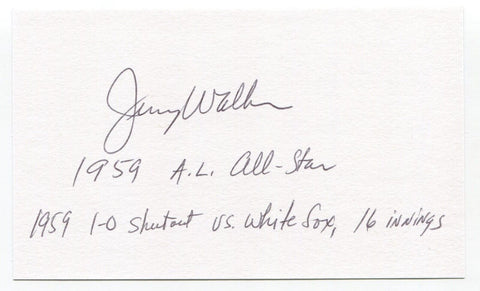 Jerry Walker
1959 A.L. All-Star
1959 1-0 shutout vs. White Sox, 16 innings